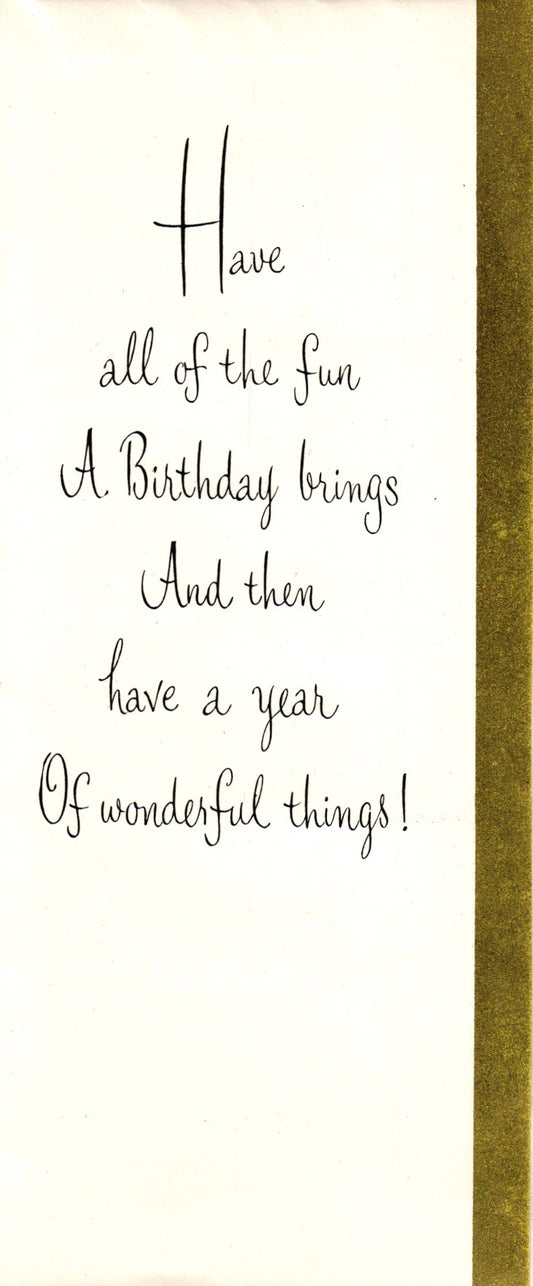 Have
all of the fun
A Birthday brings
And then
have a year
Of wonderful things!